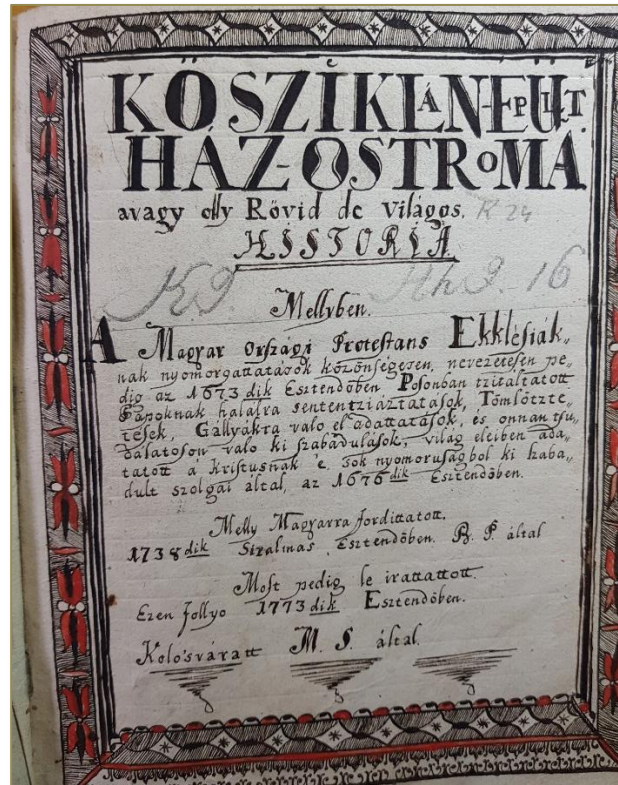 KŐSZIKLÁN-EPÜLT
HÁZ-OSTROMA.
avagy egy Rövid de világos. R 29
HISTORIA
Mellyben.
A Magyar Országi Protestans Ekklésiák„
nak nyomorgattatások közönségesen, nevezetesen pe„
dig az 1673dik Esztendőben Posonban tzitáltatott
Papoknak halálra sententziáztatások, Tömlötzte„
tések, Gállyákra valo el adattatások, és onnan tsu„
dálatoson valo ki szabadulások, világ eleiben ada„
tatott a Kristusnak e' sok nyomoruságbol ki szaba„
dult szolgai által, az 1676dik Esztendőben.
Melly Magyarra fordittatott.
1738dik Siralmas Esztendőben. B. P. által
Most pedig le irattatott.
Ezen follyo 1773dik Esztendőben.
Kolosváratt M. S. által.